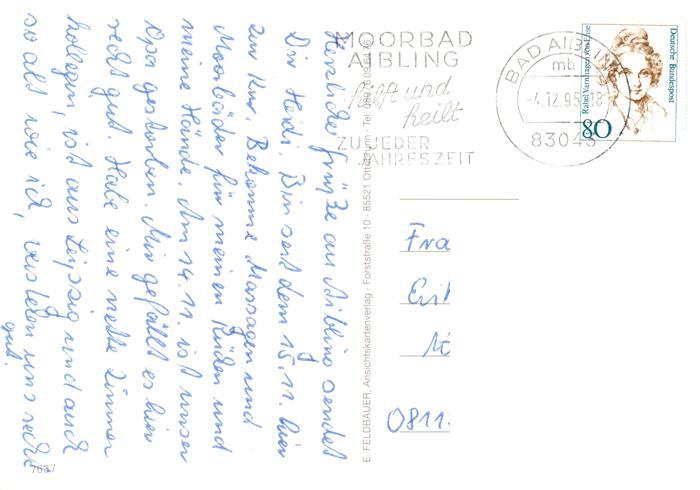 Herzliche Grüße aus Aibling sendet
Dir Heidi. Bin seit dem 15.11. hier
zur Kur. Bekomme Massagen und
Moorbäder für meinen Rücken und
meine Hände. Am 14.11. ist unser
Opa gestorben. Mir gefällt es hier
recht gut. Habe eine nette Zimmer
kollegin, ist aus Leipzig und auch
so alt wie ich, verstehen uns recht
gut.
7637
E. FELDBAUER, Ansichtskartenverlag · Forststraße 10 · 85521 Ottobrunn · Tel.
MOORBAD
AIBLING
hilft und
heilt
ZU JEDER
JAHRESZEIT
BAD AIBLING
mb
-4.12.95-18
83043
Deutsche Bundespost
Rahel Varnhagen von Ense
80
Fra
0811